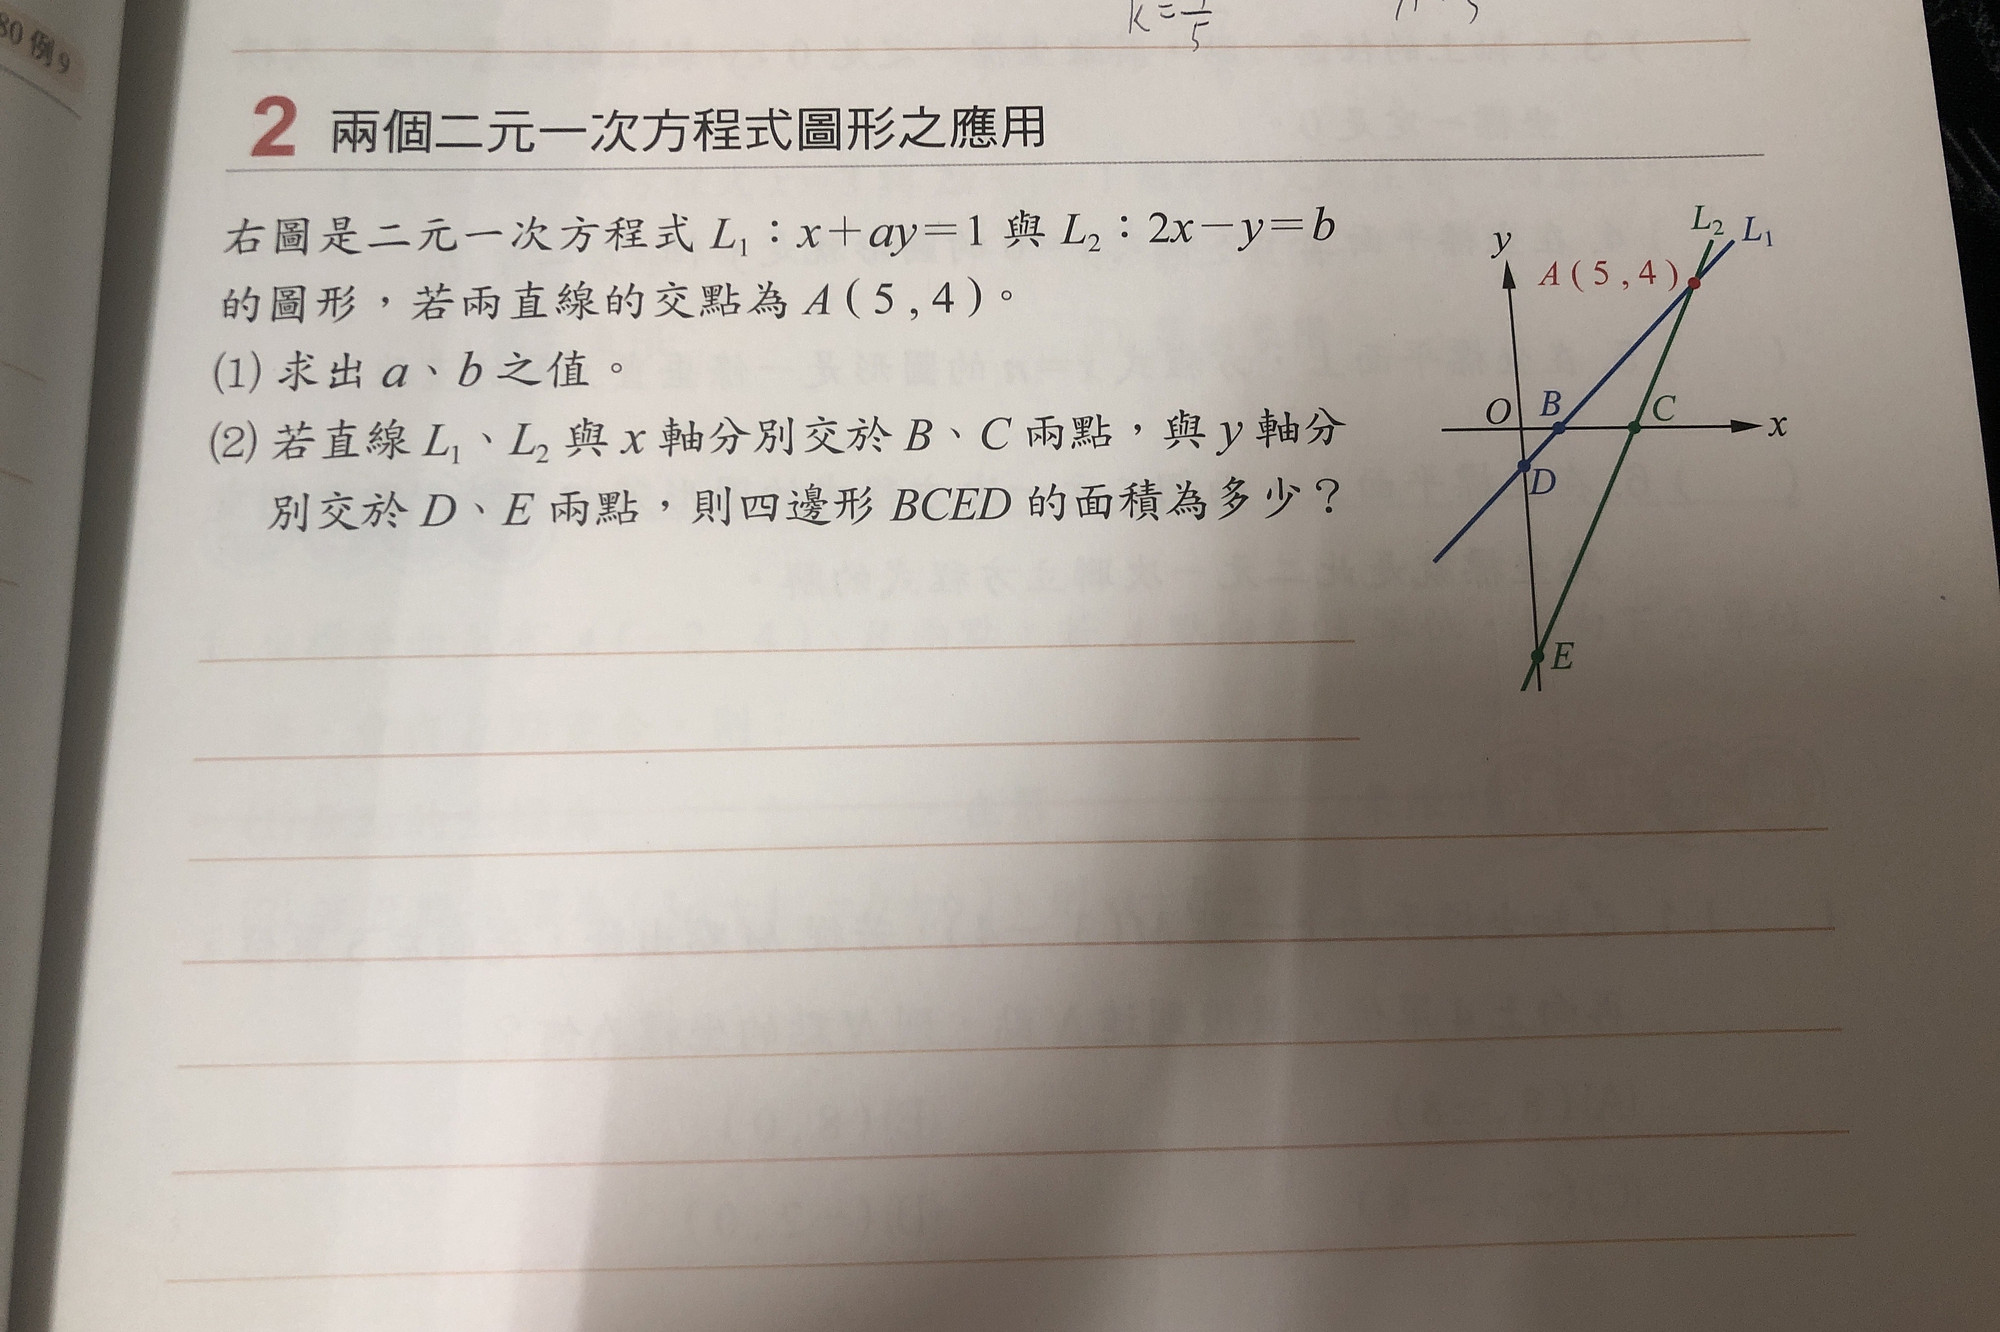 80 例9
k=1/5
2 兩個二元一次方程式圖形之應用
右圖是二元一次方程式 L₁：x＋ay＝1 與 L₂：2x－y＝b
的圖形，若兩直線的交點為 A ( 5 , 4 )。
(1) 求出 a、b 之值。
(2) 若直線 L₁、L₂ 與 x 軸分別交於 B、C 兩點，與 y 軸分
別交於 D、E 兩點，則四邊形 BCED 的面積為多少？
y
L₂
L₁
A ( 5 , 4 )
O
B
C
x
D
E